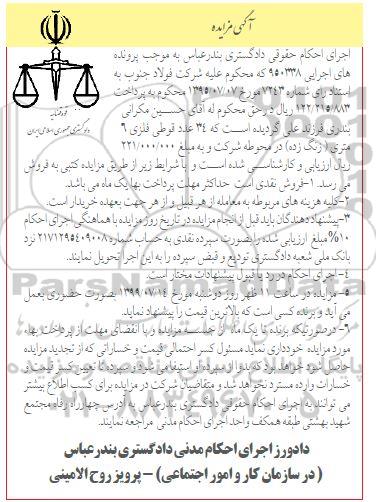 آگهی مزایده
قوه قضائیه
دادگستری جمهوری اسلامی ایران
اجرای احکام حقوقی دادگستری بندرعباس به موجب پرونده
های اجرایی ۹۵۰۳۳۸ که محکوم علیه شرکت فولاد جنوب به
استناد رای شماره ۷۲۴۳ مورخ ۱۳۹۵/۰۷/۰۷ محکوم به پرداخت
۱۲۲/۲۱۵/۸۸۳ ریال در حق محکوم له آقای حسین مکرانی
بندری فرزند علی گردیده است که ۳۴ عدد قوطی فلزی ۹
متری (زنگ زده) در محوطه شرکت و به مبلغ ۲۲۱/۰۰۰/۰۰۰
ریال ارزیابی و کارشناسی شده است و با شرایط زیر از طریق مزایده کتبی به فروش
می رسد. ۱-فروش نقدی است حداکثر مهلت پرداخت بها یک ماه می باشد.
۲-کلیه هزینه های مربوطه به معامله از هر قبیل و از هر جهت بعهده خریدار است.
۳-پیشنهاد دهندگان باید قبل از انجام مزایده در تاریخ روز مزایده با هماهنگی اجرای احکام
۱۰% مبلغ ارزیابی شده را بصورت سپرده نقدی به حساب شماره ۲۱۷۱۲۹۵۴۰۹۰۰۸ نزد
بانک ملی شعبه دادگستری تودیع و قبض سپرده را به این اجرا تحویل نمایند.
۴-اجرای احکام در رد یا قبول پیشنهادات مختار است.
۵- مزایده در ساعت ۱۱ ظهر روز دوشنبه مورخ ۱۳۹۹/۰۷/۱۴ بصورت حضوری بعمل
می آید و برنده کسی است که بالاترین قیمت را پیشنهاد نماید.
۶-درصورتیکه برنده تا یک ماه از جلسه مزایده و با انقضای مهلت از پرداخت بهاء
مورد مزایده خودداری نماید مسئول کسر احتمالی قیمت و خساراتی که از تجدید مزایده
حاصل شود خواهد بود که بدوا از سپرده او استیفا می شود و سپرده تا تعیین کسر قیمت و
خسارات وارده مسترد نخواهد شد و متقاضیان شرکت در مزایده برای کسب اطلاع بیشتر
می توانند به اجرای احکام حقوقی دادگستری بندرعباس به آدرس چهارراه رفاه مجتمع
شهید بهشتی طبقه همکف واحد اجرای احکام مدنی مراجعه نمایند.
دادورز اجرای احکام مدنی دادگستری بندرعباس
(در سازمان کار و امور اجتماعی) – پرویز روح الامینی